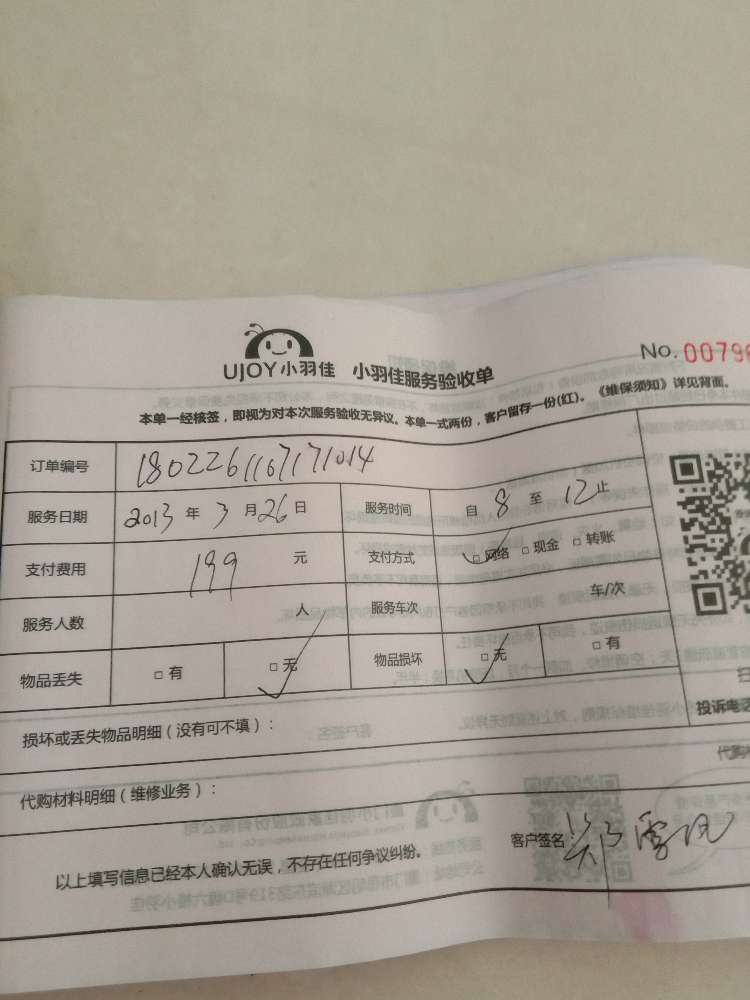 UJOY小羽佳 小羽佳服务验收单
No. 00796
本单一经核签，即视为对本次服务验收无异议。本单一式两份，客户留存一份(红)。《维保须知》详见背面。
订单编号 1802261167171014
服务日期 2013 年 3 月 26 日 服务时间 自 8 至 12 止
支付费用 199 元 支付方式 □ 网络 □ 现金 □ 转账
服务人数 人 服务车次 车/次
物品丢失 □ 有 □ 无 物品损坏 □ 无 □ 有
投诉电话
损坏或丢失物品明细（没有可不填）：
代购材料明细（维修业务）：
代购
客户签名
以上填写信息已经本人确认无误，不存在任何争议纠纷。